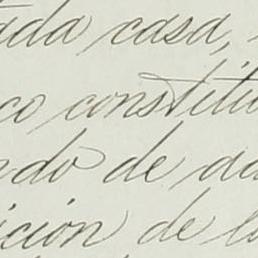 ada casa,
co constitu
ndo de ad
ición de l